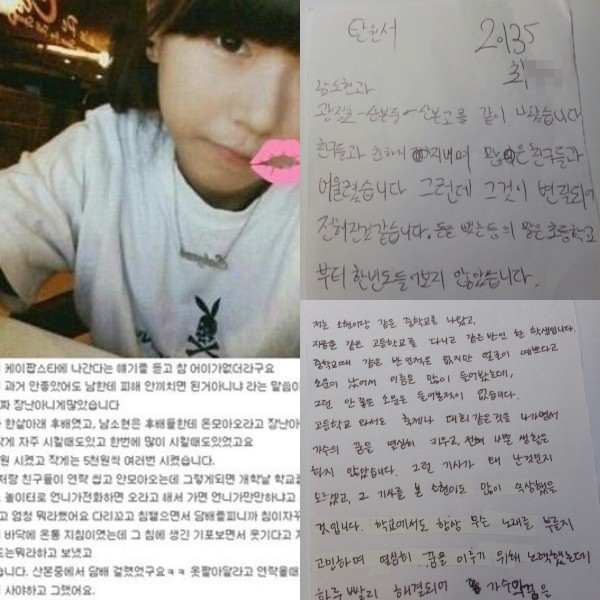 케이팝스타에 나간다는 얘기를 듣고 참 어이가없더라구요
과거 안좋았어도 남한테 피해 안끼치면 된거아니냐 라는 말씀이
짜 장난아니게많았습니다
한살아래 후배였고, 남소현은 후배들한테 돈모아오라고 장난아
작게 자주 시킬때도있고 한번에 많이 시킬때도있었고요
원 시켰고 작게는 5천원씩 여러번 시켰습니다.
저랑 친구들이 연락 씹고 안모아오는데 그렇게되면 개학날 학교
놀이터로 언니가전화하면 오라고 해서 가면 언니가만만하냐고
고 엄청 뭐라했어요 다리꼬고 침뱉으면서 담배를피니까 침이자꾸
바닥에 온통 지침이였는데 그 침에 생긴 기포보면서 웃기다고
도는뭐라하고 보냈고
습니다. 산본중에서 담배 걸렸었구요ㅋㅋ 옷팔아달라고 연락올때
사야하고 그랬어요.
탄원서 20135
최
남소현과
광정초-산본중-산본고를 같이 나왔습니다
친구들과 친하게 지내며 많은 친구들과
어울렸습니다 그런데 그것이 변질되어
전해진것같습니다. 돈을 뺏는등의 말은 초등학교
부터 한번도들어보지 않았습니다.
저는 소현이랑 같은 중학교를 나왔고,
지금은 같은 고등학교를 다니고 같은 반인 한 학생입니다.
중학교때 같은 반 인적은 없지만 얼굴이 예쁘다고
소문이 났어서 이름은 많이 들어봤는데,
그런 안 좋은 소문은 들어본적이 없습니다.
고등학교 와서도 축제나 대회 같은것을 나가면서
가수의 꿈을 열심히 키우고, 전혀 나쁜 생활은
하지 않았습니다. 그런 기사가 왜 난건지
모르겠고, 그 기사를 본 소현이도 많이 속상했을
것입니다. 학교에서도 항상 무슨 노래를 부를지
고민하며 열심히 꿈을 이루기 위해 노력했는데
하루 빨리 해결되어 가수의꿈을